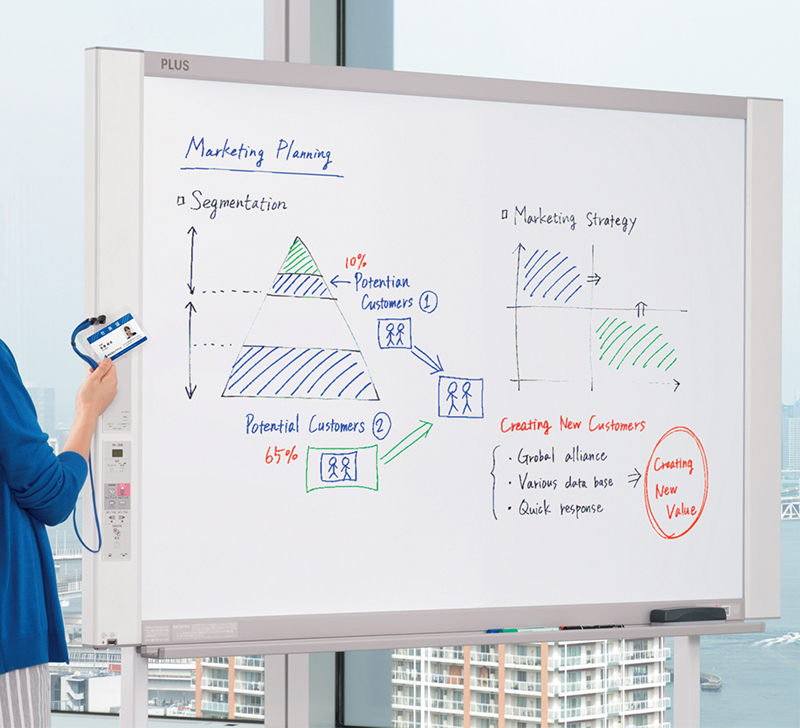 PLUS
Marketing Planning
Segmentation
10%
Potentian
Customers ①
Potential Customers ②
65%
Marketing Strategy
Creating New Customers
・Grobal alliance
・Various data base
・Quick response
⇒
Creating
New
Value